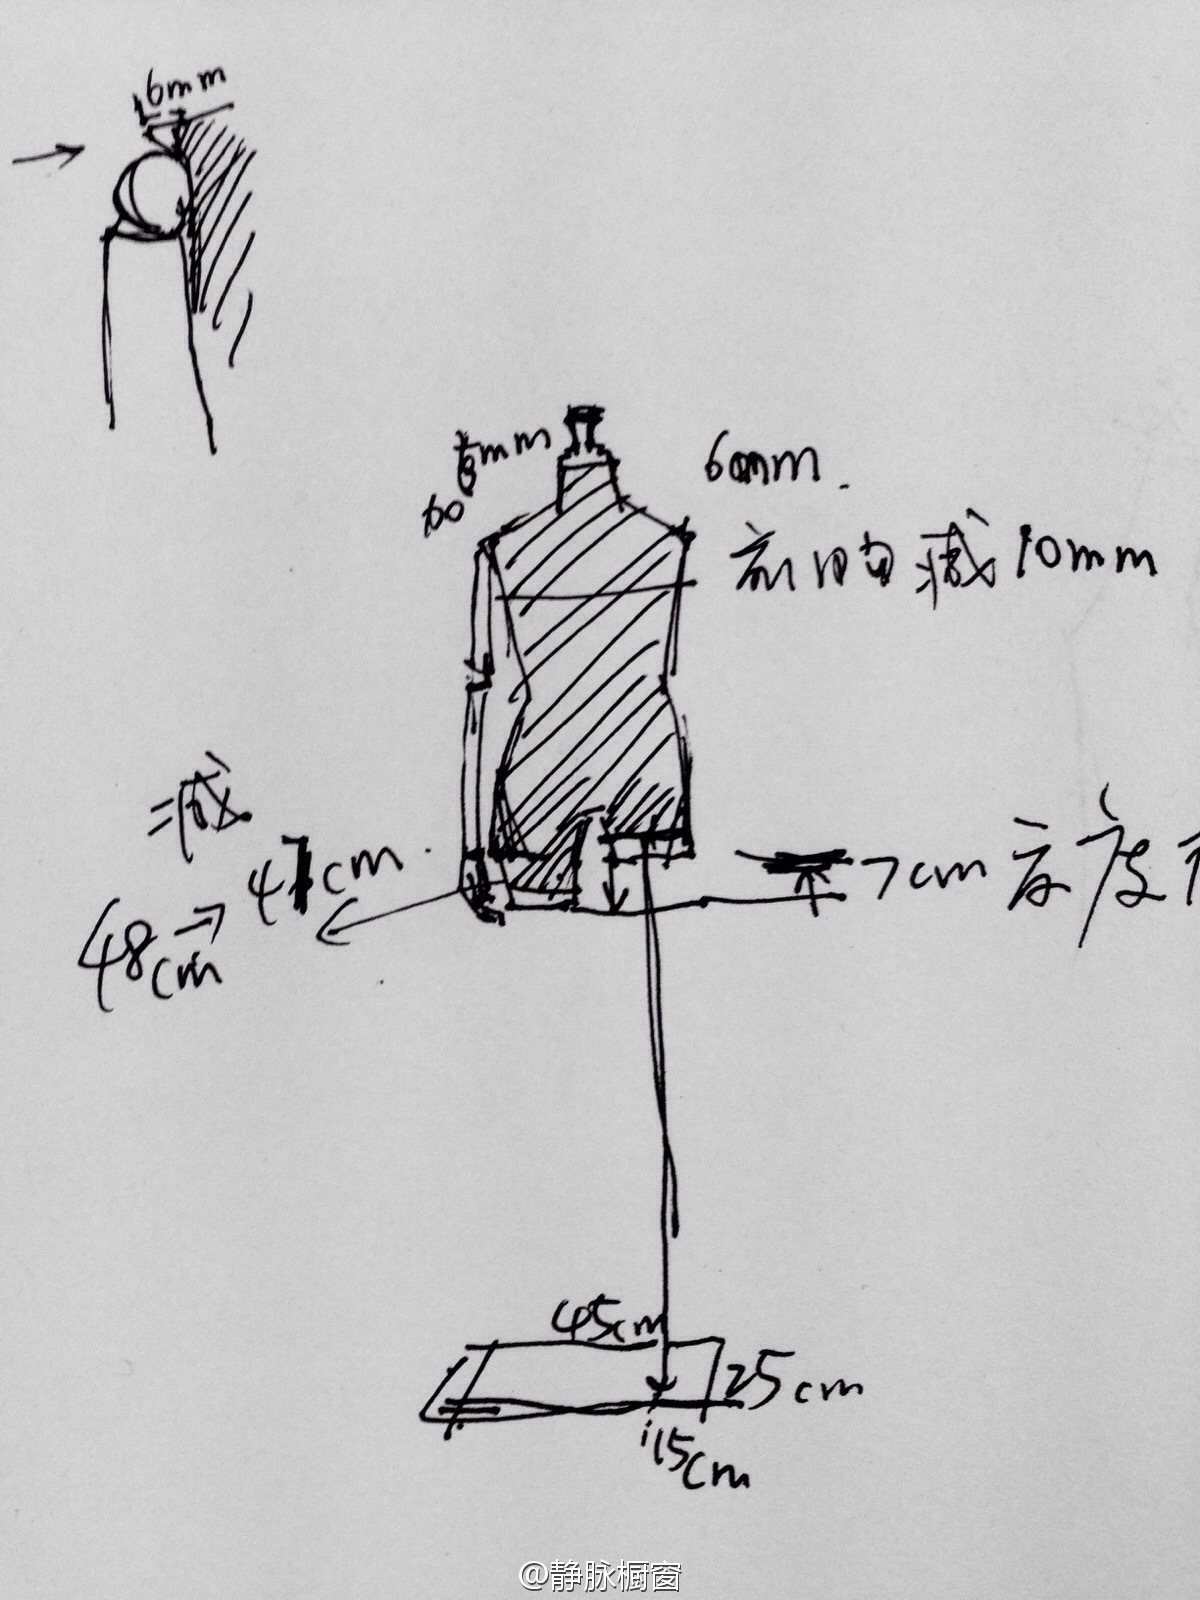 6mm
6mm
60
60mm.
前胸减10mm
减
48cm → 47cm
7cm 高度
45cm
25cm
115cm
@静脉橱窗